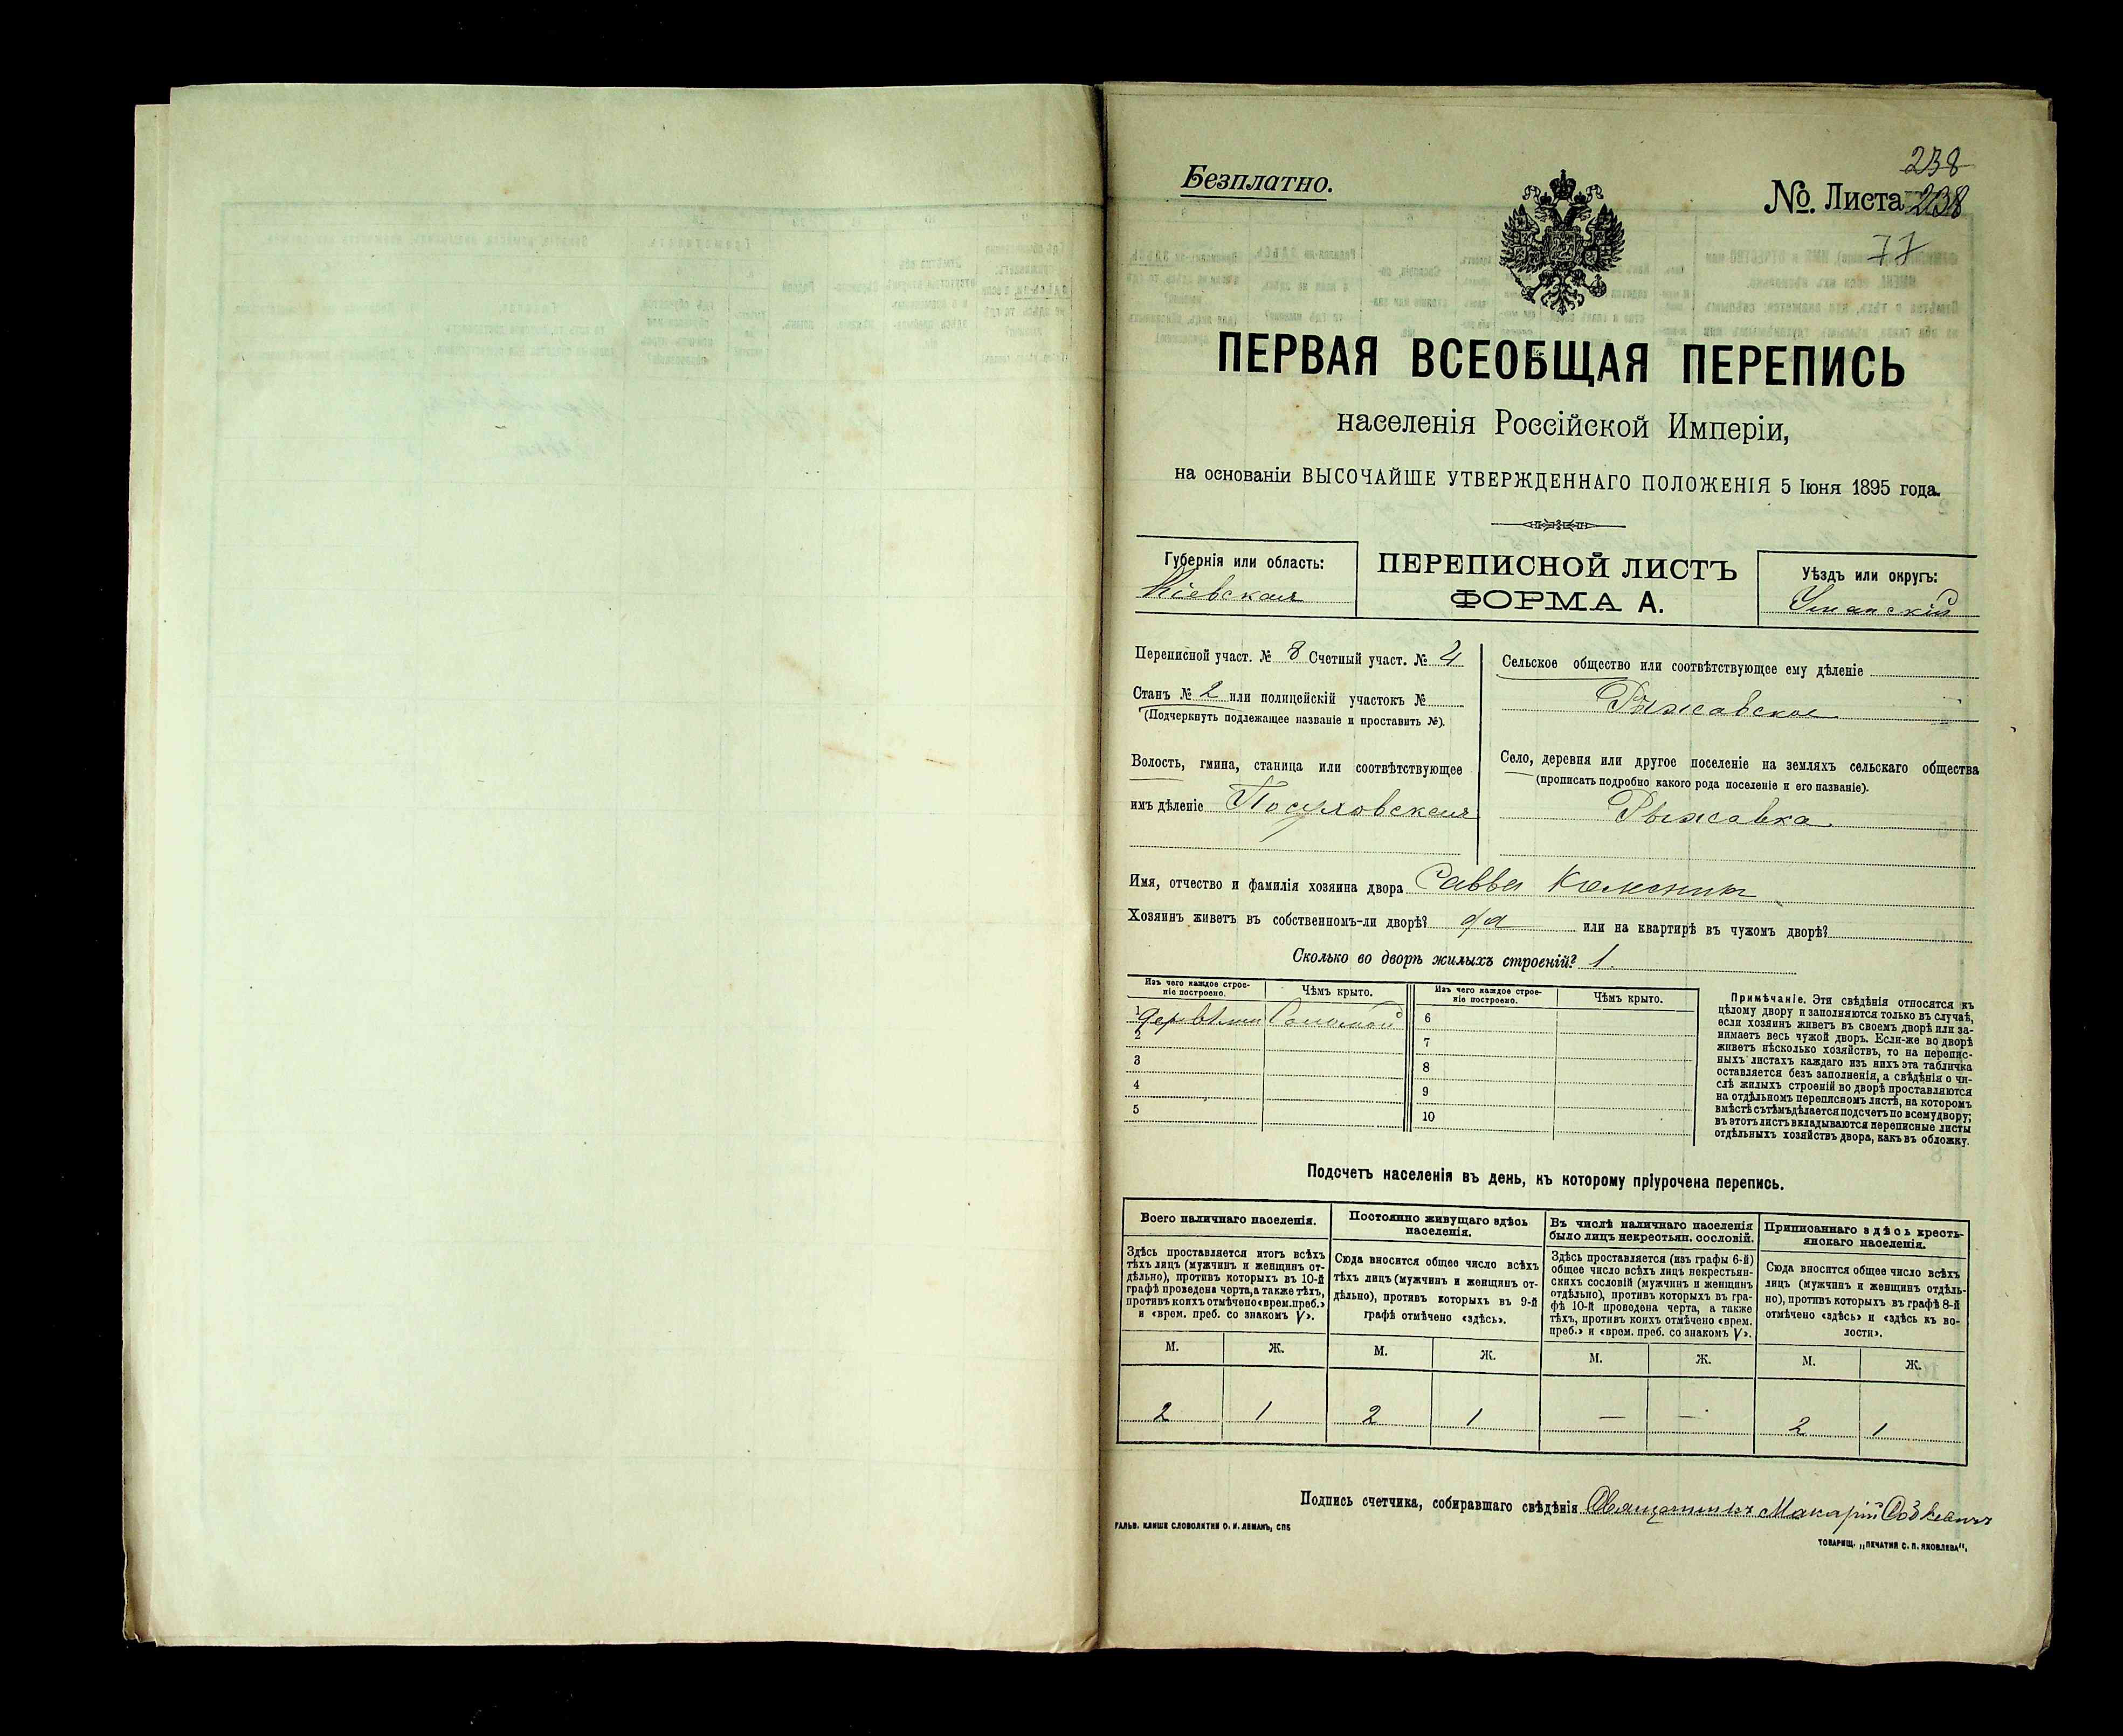 238
Безплатно.
№. Листа 238
77
ПЕРВАЯ ВСЕОБЩАЯ ПЕРЕПИСЬ
населенія Россійской Имперіи,
на основаніи ВЫСОЧАЙШЕ УТВЕРЖДЕННАГО ПОЛОЖЕНІЯ 5 Іюня 1895 года.
Губернія или область:
Кіевская
ПЕРЕПИСНОЙ ЛИСТЪ
ФОРМА А.
Уѣздъ или округъ:
Уманскій
Переписной участ. № 8 Счетный участ. № 4
Станъ № 2 или полицейскій участокъ №
(Подчеркнуть подлежащее названіе и проставить №).
Волость, гмина, станица или соотвѣтствующее
имъ дѣленіе Посуховская
Сельское общество или соотвѣтствующее ему дѣленіе
Рыжавское
Село, деревня или другое поселеніе на земляхъ сельскаго общества
(прописать подробно какого рода поселеніе и его названіе).
Рыжавка
Имя, отчество и фамилія хозяина двора Савва Колесникъ
Хозяинъ живетъ въ собственномъ-ли дворѣ? да или на квартирѣ въ чужомъ дворѣ?
Сколько во дворѣ жилыхъ строеній? 1.
Изъ чего каждое строе-
ніе построено.
Чѣмъ крыто.
Изъ чего каждое строе-
ніе построено.
Чѣмъ крыто.
1 Соломой 6
2 7
3 8
4 9
5 10
Примѣчаніе. Эти свѣдѣнія относятся къ
цѣлому двору и заполняются только въ случаѣ,
если хозяинъ живетъ въ своемъ дворѣ или за-
нимаетъ весь чужой дворъ. Если-же во дворѣ
живетъ нѣсколько хозяйствъ, то на перепис-
ныхъ листахъ каждаго изъ нихъ эта табличка
оставляется безъ заполненія, а свѣдѣнія о чи-
слѣ жилыхъ строеній во дворѣ проставляются
на отдѣльномъ переписномъ листѣ, на которомъ
вмѣстѣ съ тѣмъ дѣлается подсчетъ по всему двору;
въ этотъ листъ вкладываются переписные листы
отдѣльныхъ хозяйствъ двора, какъ въ обложку.
Подсчетъ населенія въ день, къ которому пріурочена перепись.
Всего наличнаго населенія.
Здѣсь проставляется итогъ всѣхъ
тѣхъ лицъ (мужчинъ и женщинъ от-
дѣльно), противъ которыхъ въ 10-й
графѣ проведена черта, а также тѣхъ,
противъ коихъ отмѣчено «врем. преб.»
и «врем. преб. со знакомъ V».
Постоянно живущаго здѣсь
населенія.
Сюда вносится общее число всѣхъ
тѣхъ лицъ (мужчинъ и женщинъ от-
дѣльно), противъ которыхъ въ 9-й
графѣ отмѣчено «здѣсь».
Въ числѣ наличнаго населенія
было лицъ некрестьян. сословій.
Здѣсь проставляется (изъ графы 6-й)
общее число всѣхъ лицъ некрестьян-
скихъ сословій (мужчинъ и женщинъ
отдѣльно), противъ которыхъ въ гра-
фѣ 10-й проведена черта, а также
тѣхъ, противъ коихъ отмѣчено «врем.
преб.» и «врем. преб. со знакомъ V».
Приписаннаго здѣсь кресть-
янскаго населенія.
Сюда вносится общее число всѣхъ
лицъ (мужчинъ и женщинъ отдѣль-
но), противъ которыхъ въ графѣ 8-й
отмѣчено «здѣсь» и «здѣсь къ во-
лости».
М. Ж. М. Ж. М. Ж. М. Ж.
2 1 2 1 — — 2 1
Подпись счетчика, собиравшаго свѣдѣнія Священникъ Макарій
ГАЛЬВ. КЛИШЕ СЛОВОЛИТНИ О. И. ЛЕМАНЪ, СПБ
ТОВАРИЩ. „ПЕЧАТНЯ С. П. ЯКОВЛЕВА“.